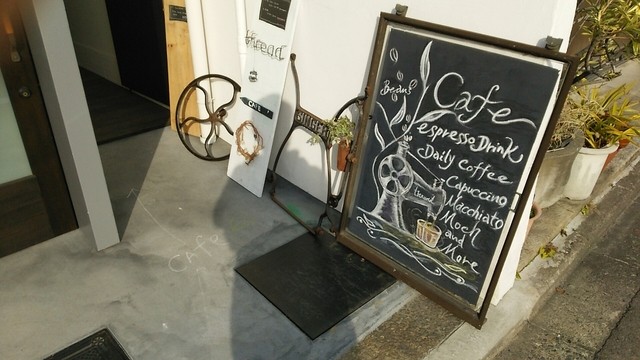 thread
CAFE
SINGER
Beans
Cafe
espresso Drink
Daily Coffee
Capuccino
Macchiato
Moch
and
More
thread
CAFE